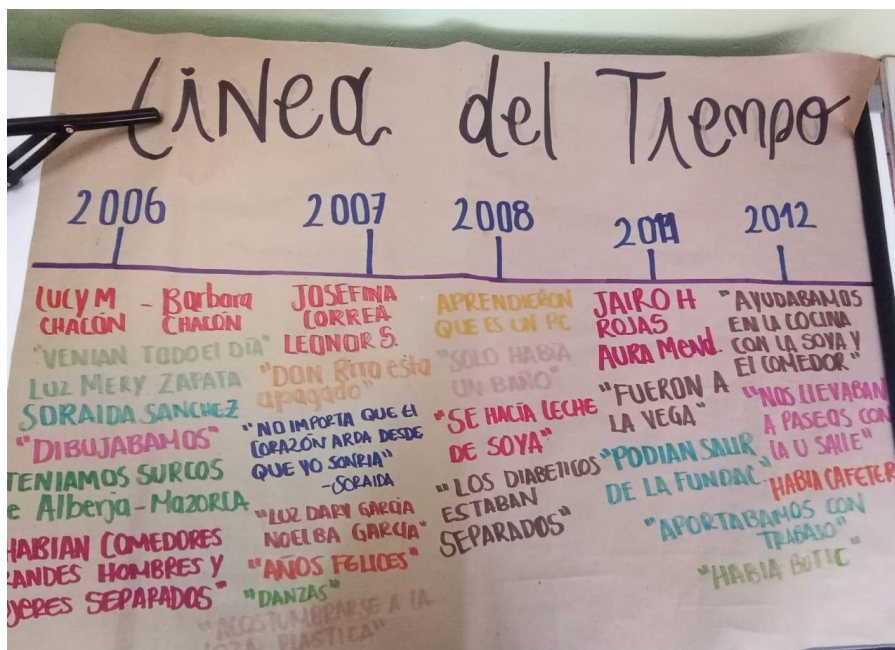 Linea del Tiempo
2006
LUCY M - Barbara
CHACÓN CHACÓN
"VENIAN TODO El DÍA"
LUZ MERY ZAPATA
SORAIDA SANCHEZ
"DIBUJABAMOS"
TENIAMOS SURCOS
e Alberja - MAZORCA
HABIAN COMEDORES
RANDES HOMBRES Y
JERES SEPARADOS"
2007
JOSEFINA
CORREA
LEONOR S.
"DON Rito está
apagado"
"NO IMPORTA QUE El
CORAZÓN ARDA DESDE
QUE YO SONRIA"
-SORAIDA
"LUZ DARY GARCÍA
NOELBA GARCÍA"
"AÑOS FELICES"
"DANZAS"
"ACOSTUMBRARSE A LA
LOZA PLASTICA"
2008
APRENDIERON
QUE ES UN PC
"SOLO HABÍA
UN BAÑO"
"SE HACÍA LECHE
DE SOYA"
"LOS DIABETICOS
ESTABAN
SEPARADOS"
2011
JAIRO H
ROJAS
AURA Mend.
"FUERON A
LA VEGA"
"PODIAN SALIR
DE LA FUNDAC."
"APORTABAMOS CON
TRABAJO"
2012
"AYUDABAMOS
EN LA COCINA
CON LA SOYA Y
El COMEDOR"
"NOS LLEVABAN
A PASEOS CON
LA U SALLE"
HABIA CAFETER
"HABIA BOTIC"